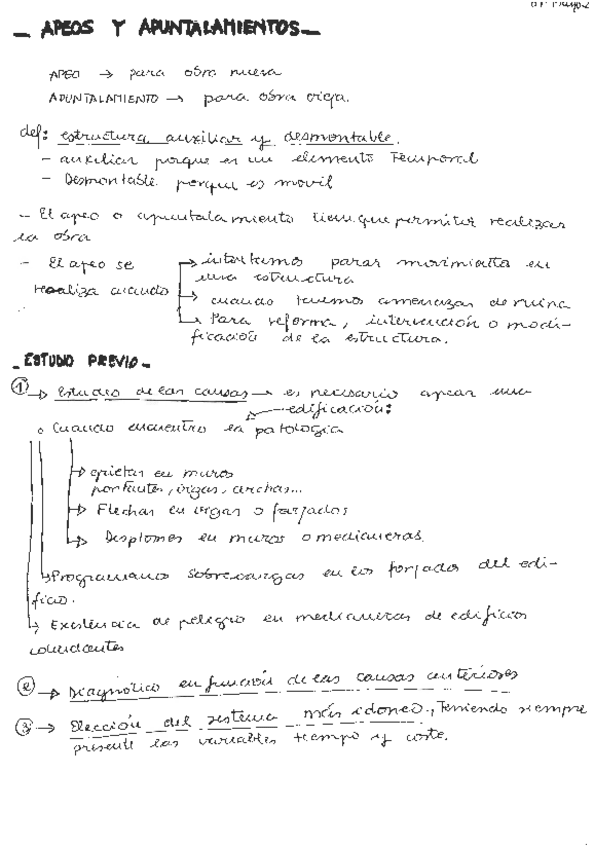 - APEOS Y APUNTALAMIENTOS -
APEO → para obra nueva
APUNTALAMIENTO → para obra vieja.
def: estructura auxiliar y desmontable.
- auxiliar porque es un elemento Temporal
- Desmontable porque es movil
- El apeo o apuntalamiento tiene que permitir realizar
la obra
- El apeo se
realiza cuando
→ intentamos parar movimientos en
una estructura
→ cuando tenemos amenazas de ruina
→ Para reforma, intervención o modi-
ficación de la estructura.
- ESTUDIO PREVIO -
① → Estudio de las causas → es necesario apear una
edificación:
o Cuando encuentro la patología
→ grietas en muros
portantes, vigas, archas...
→ Flechas en vigas o forjados
→ Desplomes en muros o medianeras.
→ Programamos sobrecargas en los forjados del edi-
ficio.
→ Existencia de peligro en medianeras de edificios
colindantes
② → Diagnóstico en función de las causas anteriores
③ → Elección del sistema más idoneo, Teniendo siempre
presente las variables tiempo y coste.